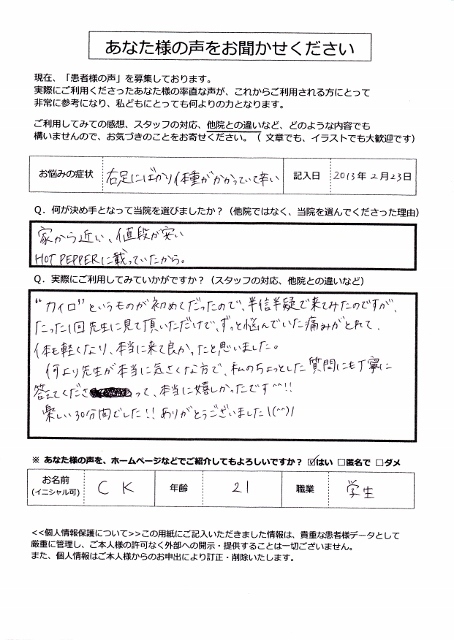 あなた様の声をお聞かせください
現在、「患者様の声」を募集しております。
実際にご利用くださったあなた様の率直な声が、これからご利用される方にとって
非常に参考になり、私どもにとっても何よりの力となります。
ご利用してみての感想、スタッフの対応、他院との違いなど、どのような内容でも
構いませんので、お気づきのことをお寄せください。（文章でも、イラストでも大歓迎です）
お悩みの症状 右足にばかり体重がかかっていて辛い 記入日 2013年2月23日
Q．何が決め手となって当院を選びましたか？（他院ではなく、当院を選んでくださった理由）
家から近い、値段が安い
HOT PEPPERに載っていたから。
Q．実際にご利用してみていかがですか？（スタッフの対応、他院との違いなど）
"カイロ"というものが初めてだったので、半信半疑で来てみたのですが、
たった1回先生に見て頂いただけで、ずっと悩んでいた痛みがとれて、
体も軽くなり、本当に来て良かったと思いました。
何より先生が本当に気さくな方で、私のちょっとした質問にも丁寧に
答えてくださって、本当に嬉しかったです^^!!
楽しい30分間でした!!ありがとうございました\(^^)/
※ あなた様の声を、ホームページなどでご紹介してもよろしいですか？ ☑はい □匿名で □ダメ
お名前 CK 年齢 21 職業 学生
(イニシャル可)
<<個人情報保護について>>この用紙にご記入いただきました情報は、貴重な患者様データとして
厳重に管理し、ご本人様の許可なく外部への開示・提供することは一切ございません。
また、個人情報はご本人様からのお申出により訂正・削除いたします。